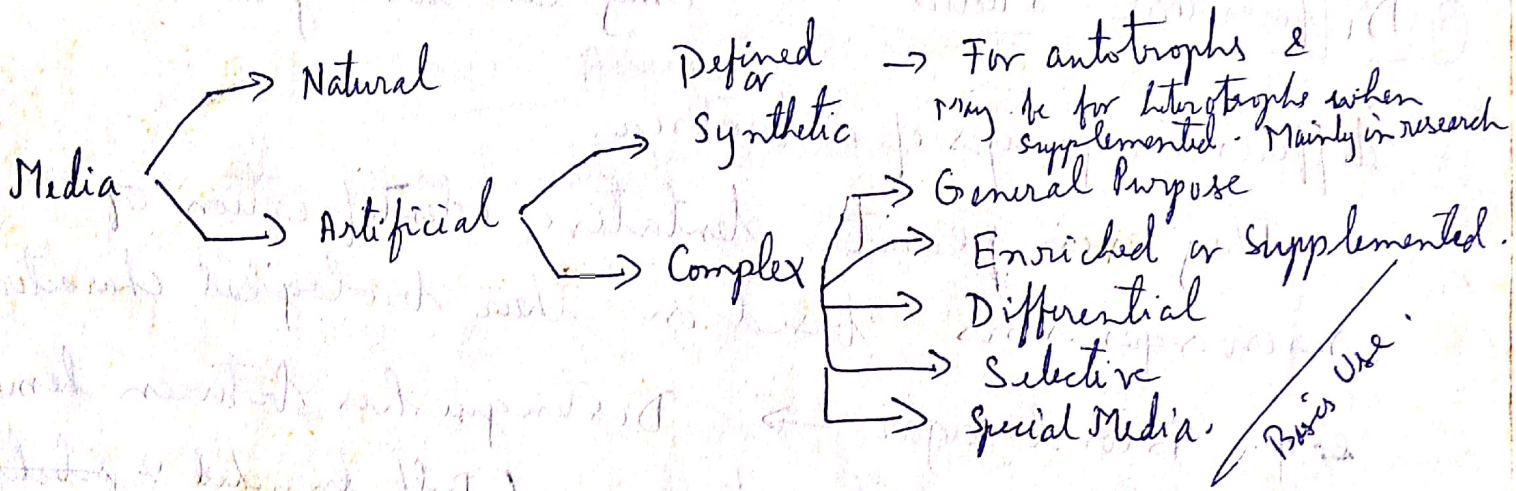 Media
Natural
Artificial
Defined
or
Synthetic
→ For autotrophs &
May be for heterotrophs when
supplemented. Mainly in research
Complex
General Purpose
Enriched or Supplemented.
Differential
Selective
Special Media.
Basis Use.